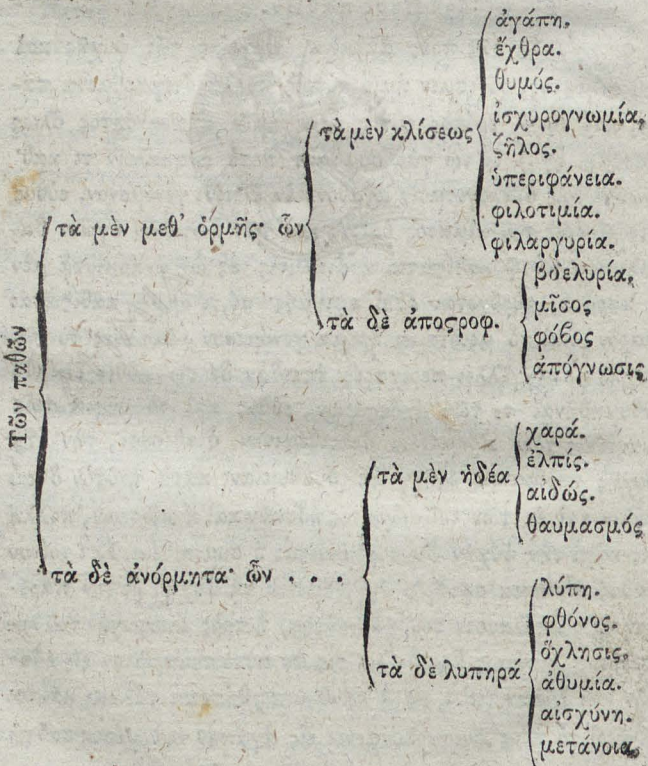 Τῶν παθῶν
τὰ μὲν μεθ' ὁρμῆς· ὧν
τὰ μὲν κλίσεως
ἀγάπη.
ἔχθρα.
θυμός.
ἰσχυρογνωμία.
ζῆλος.
ὑπεριφάνεια.
φιλοτιμία.
φιλαργυρία.
τὰ δὲ ἀποϛροφ.
βδελυρία.
μῖσος
φόβος
ἀπόγνωσις
τὰ δὲ ἀνόρμητα· ὧν ....
τὰ μὲν ἡδέα
χαρά.
ἐλπίς.
αἰδώς.
θαυμασμός
τὰ δὲ λυπηρά
λύπη.
φθόνος.
ὄχλησις.
ἀθυμία.
αἰσχύνη.
μετάνοια.